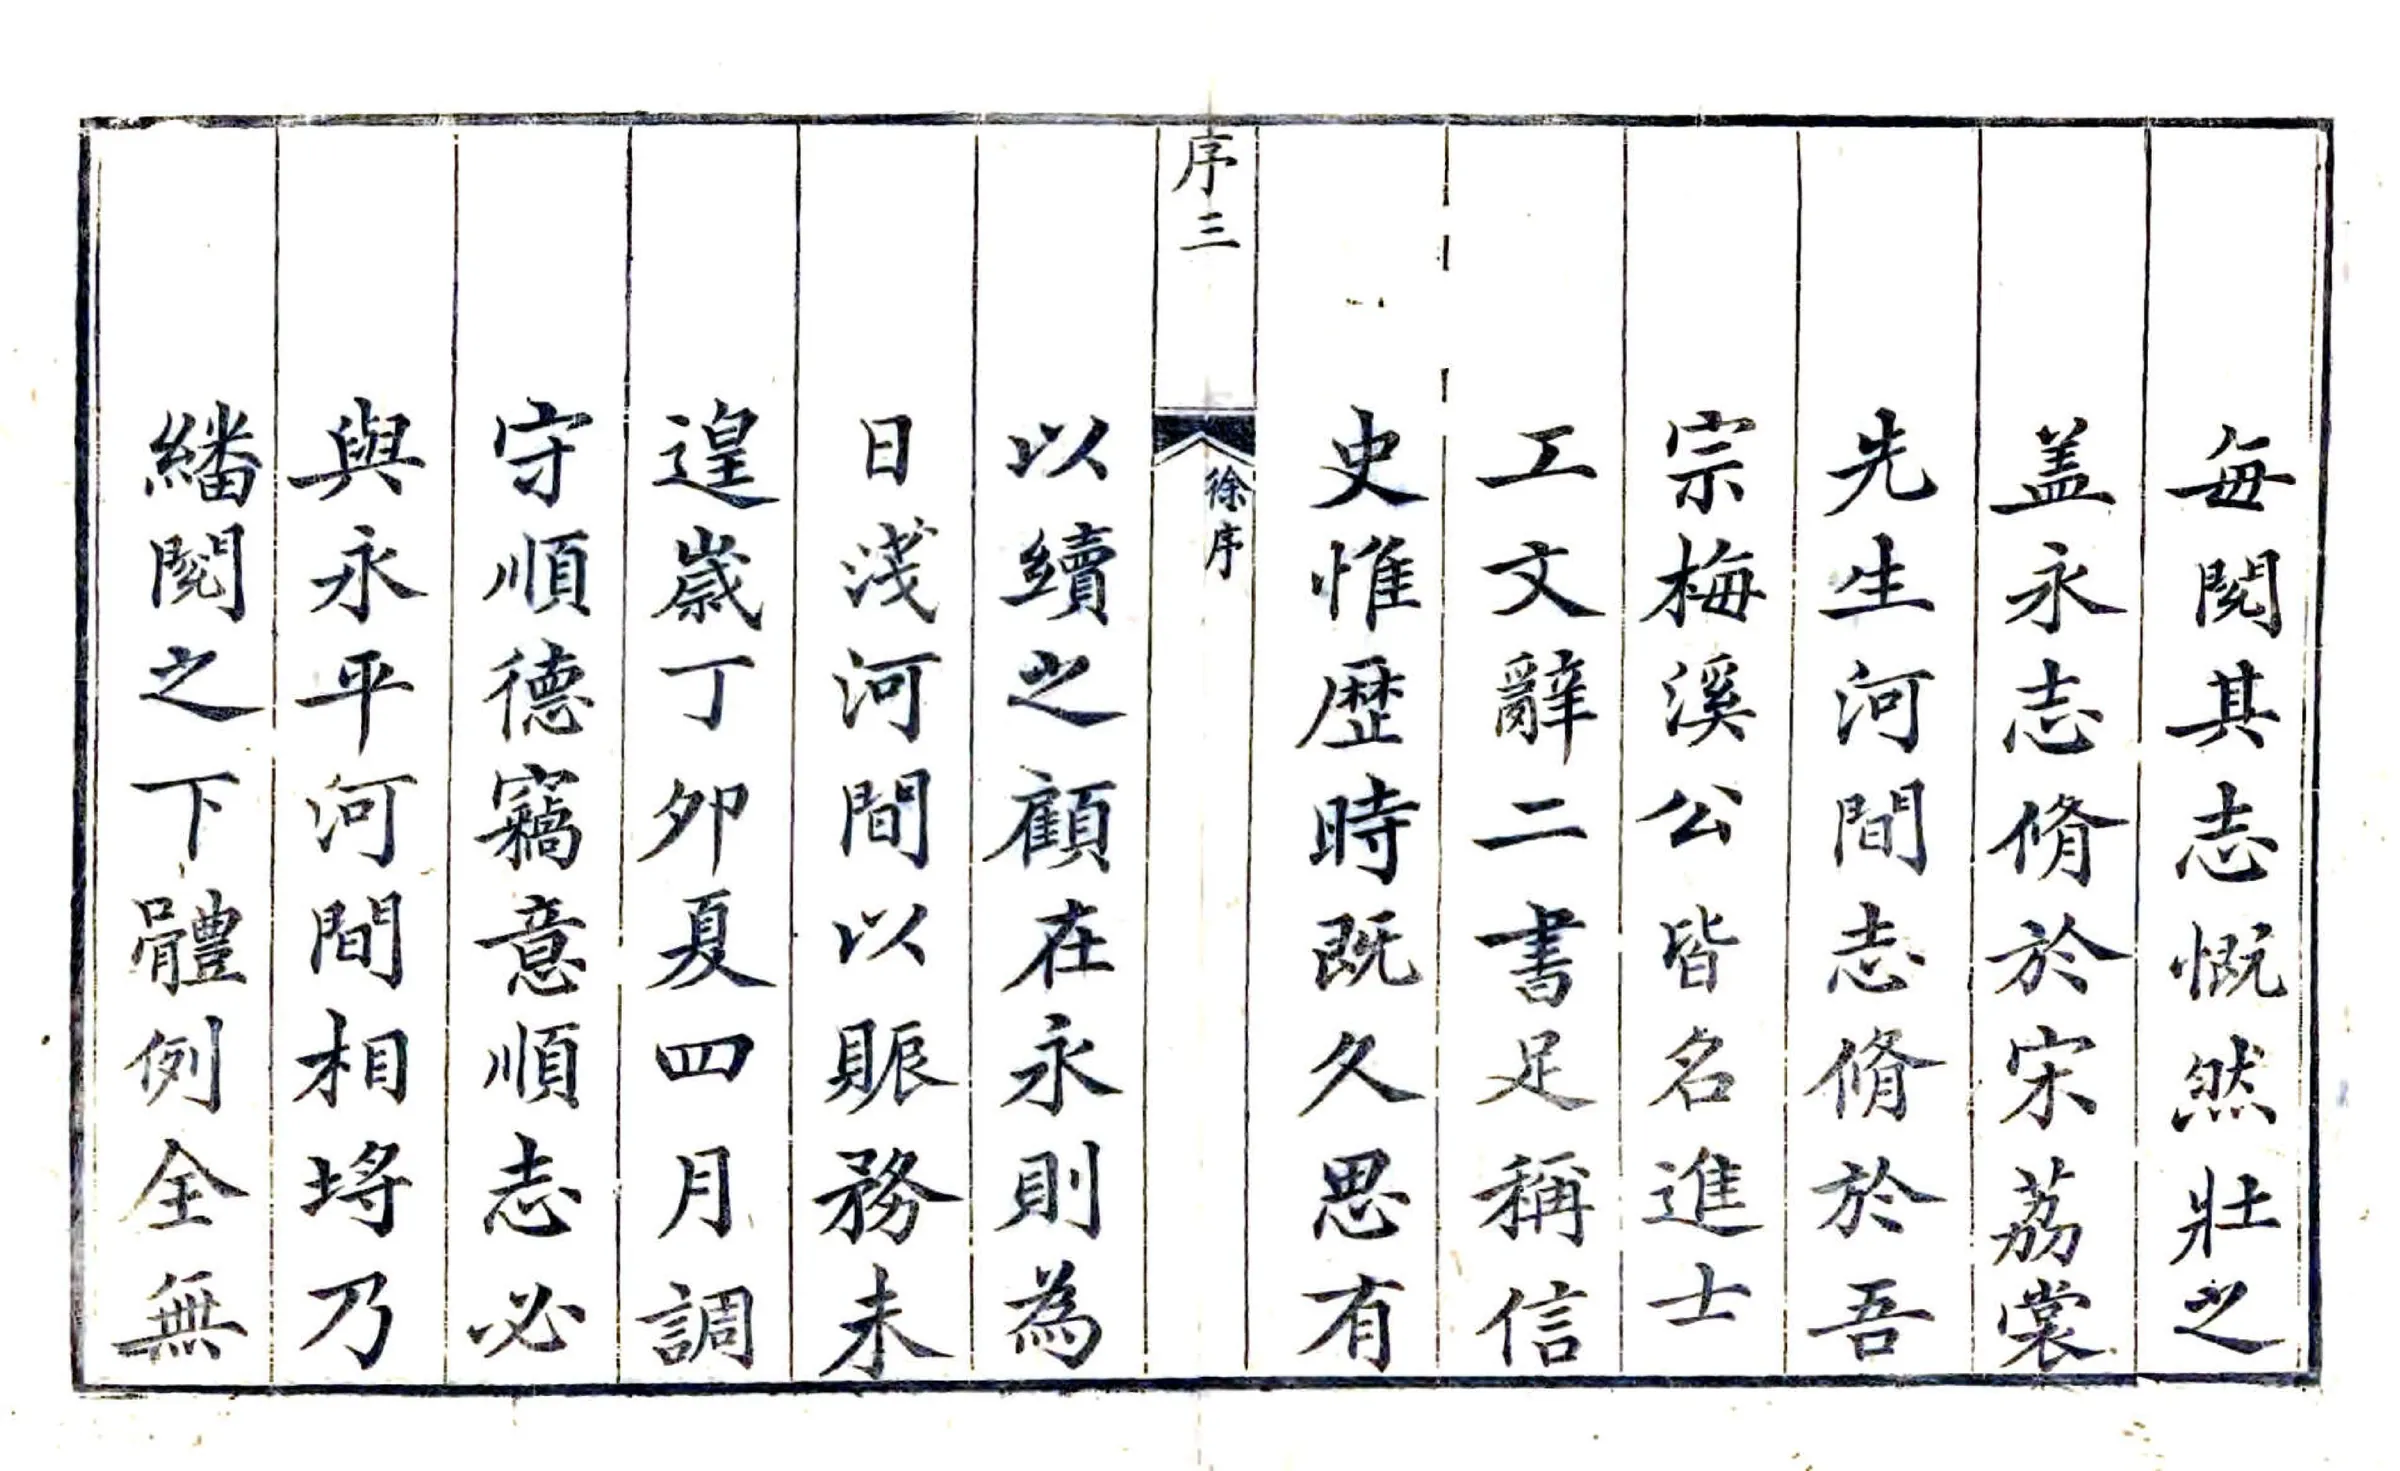 每閱其志慨然壯之
盖永志脩於宋荔裳
先生河間志脩於吾
宗梅溪公皆名進士
工文辭二書足稱信
史惟歴時既久思有
序三
徐序
以續之顧在永則為
日淺河間以賑務未
遑嵗丁夘夏四月調
守順德竊意順志必
與永平河間相埒乃
繙閱之下體例全無